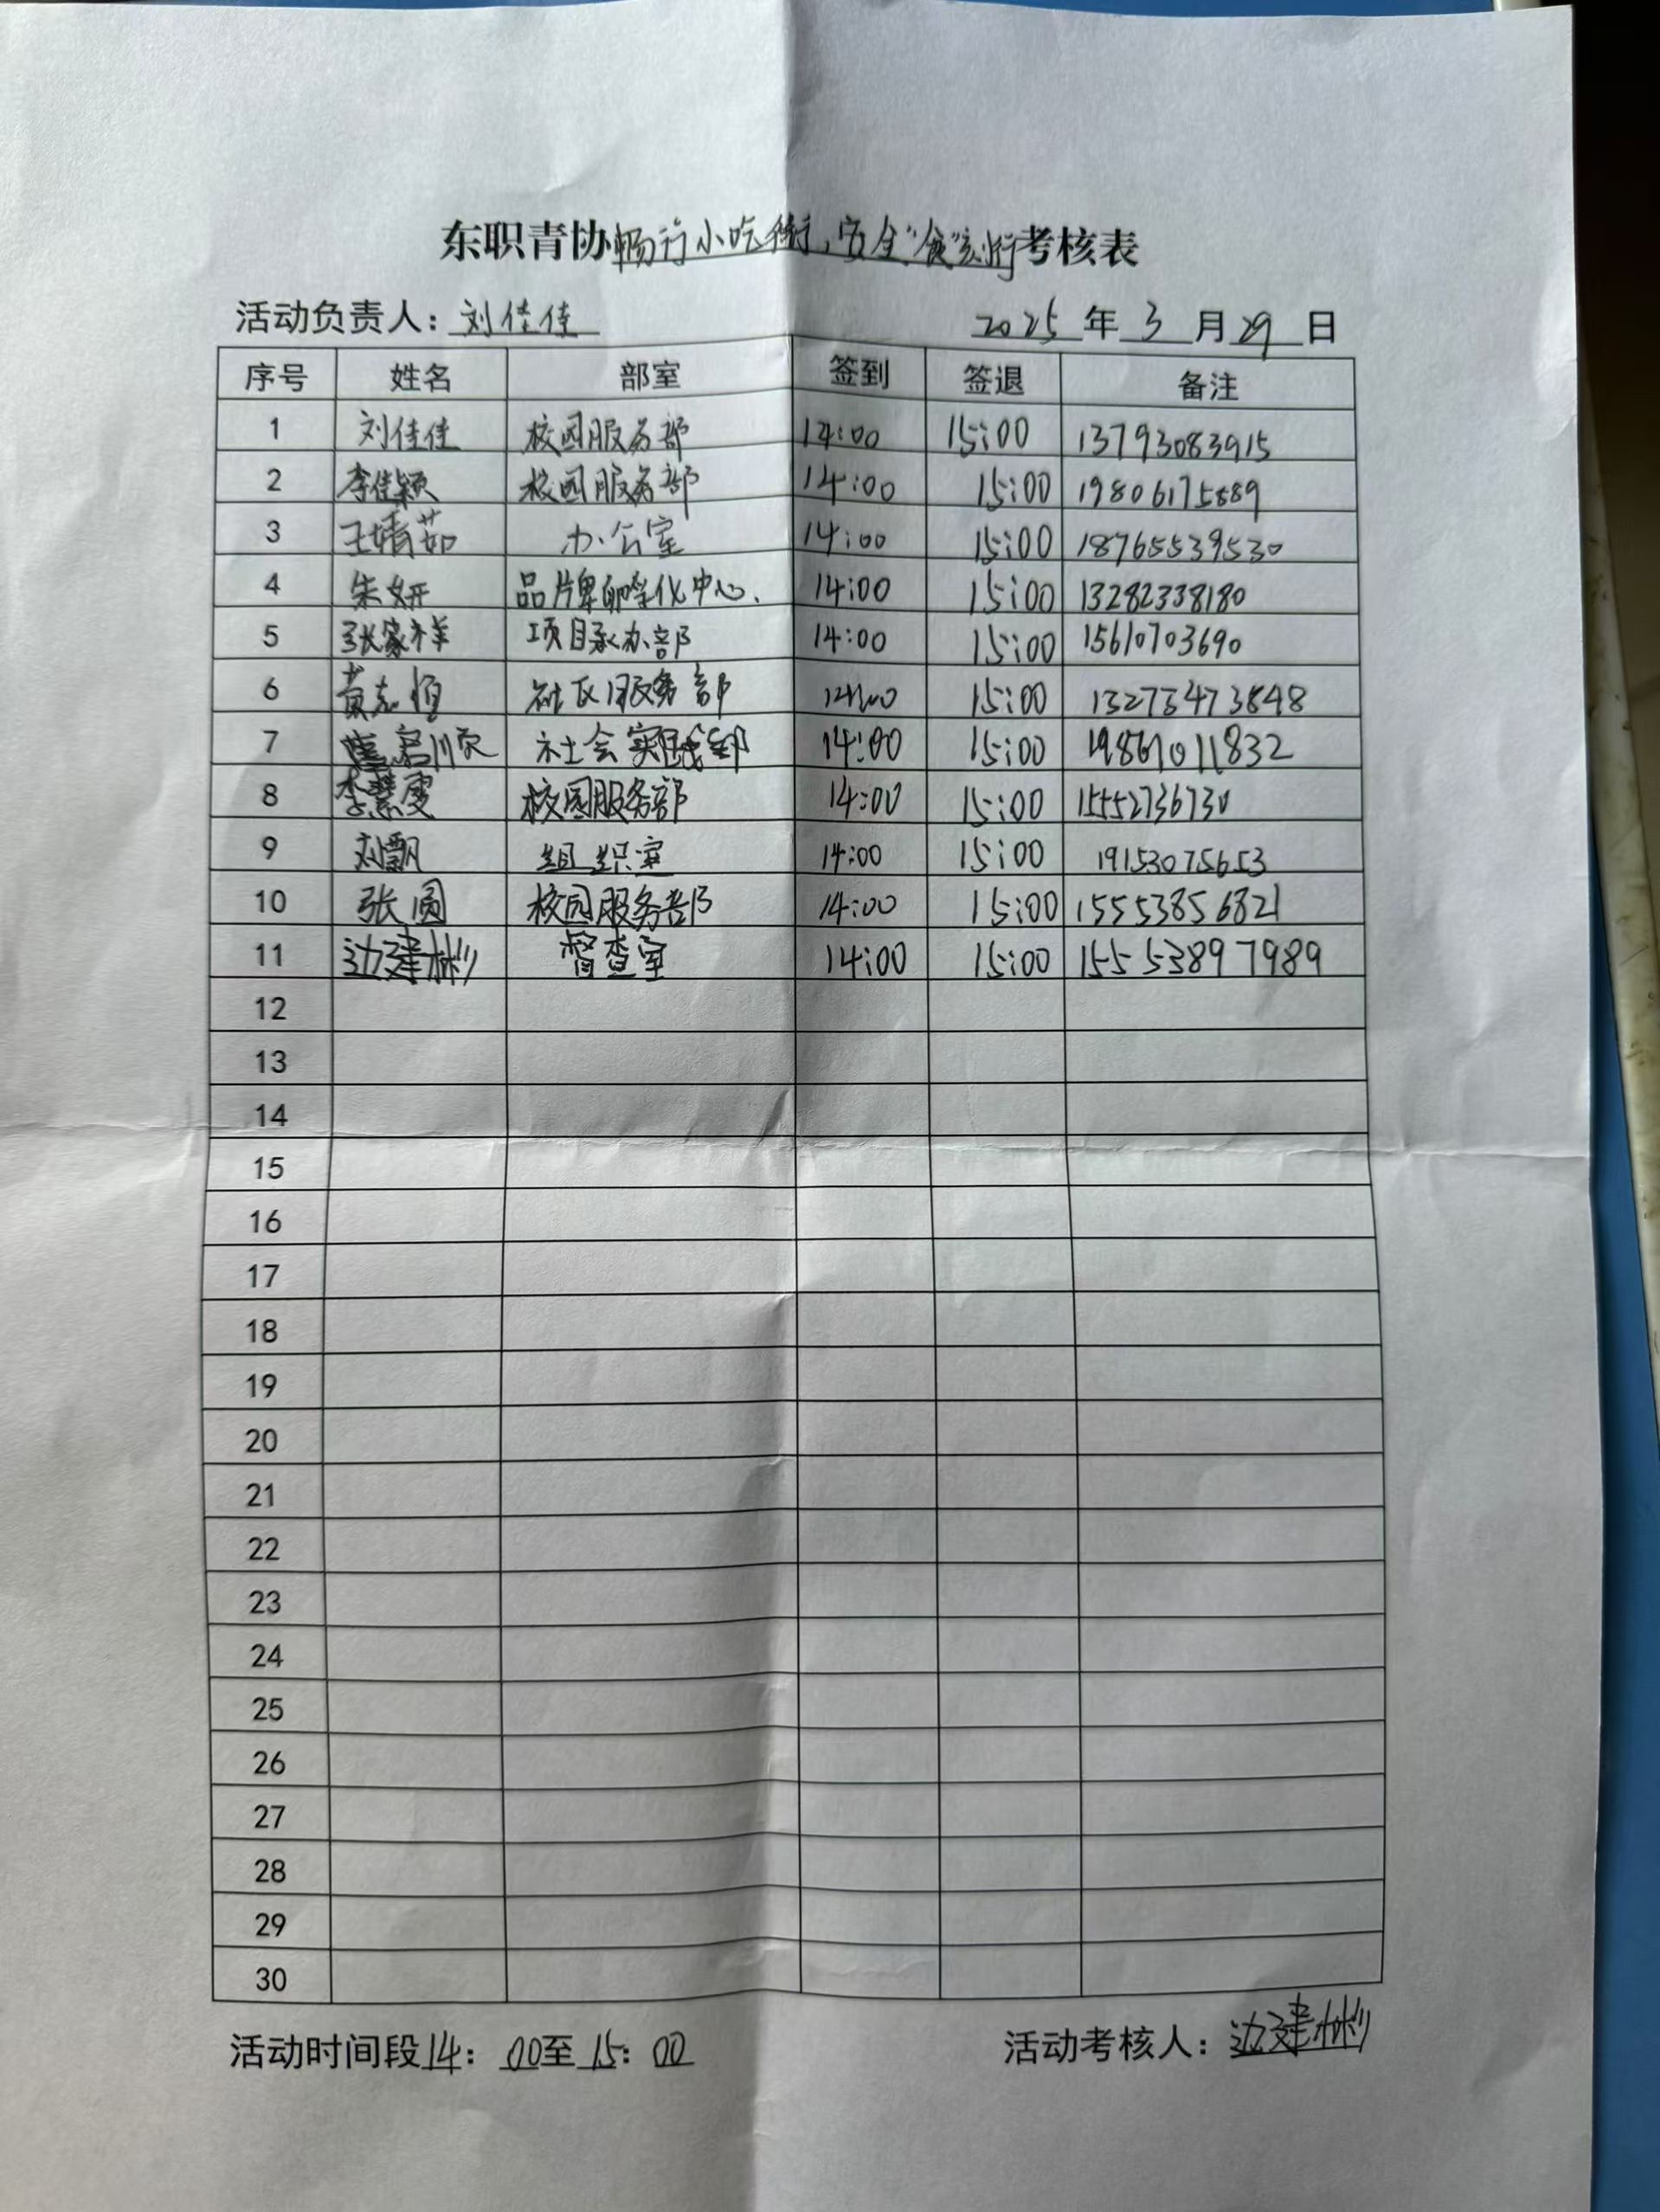 东职青协畅行小吃街,安全"食"刻行考核表
活动负责人：刘佳佳 2025年3月29日
序号 姓名 部室 签到 签退 备注
1 刘佳佳 校园服务部 14:00 15:00 13793083915
2 李佳颖 校园服务部 14:00 15:00 19806175889
3 王婧茹 办公室 14:00 15:00 18765539530
4 朱妍 品牌孵化中心. 14:00 15:00 13282338180
5 张家祥 项目承办部 14:00 15:00 15610703690
6 黄志恒 社区服务部 15:00 13273473848
7 社会实践部 14:00 15:00
8 李慧雯 校园服务部 14:00 15:00 15552736730
9 刘飘 组织室 14:00 15:00 19153075653
10 张圆 校园服务部 14:00 15:00 15553856821
11 边建彬 督查室 14:00 15:00 15553897989
12
13
14
15
16
17
18
19
20
21
22
23
24
25
26
27
28
29
30
活动时间段14：00至15：00 活动考核人：边建彬